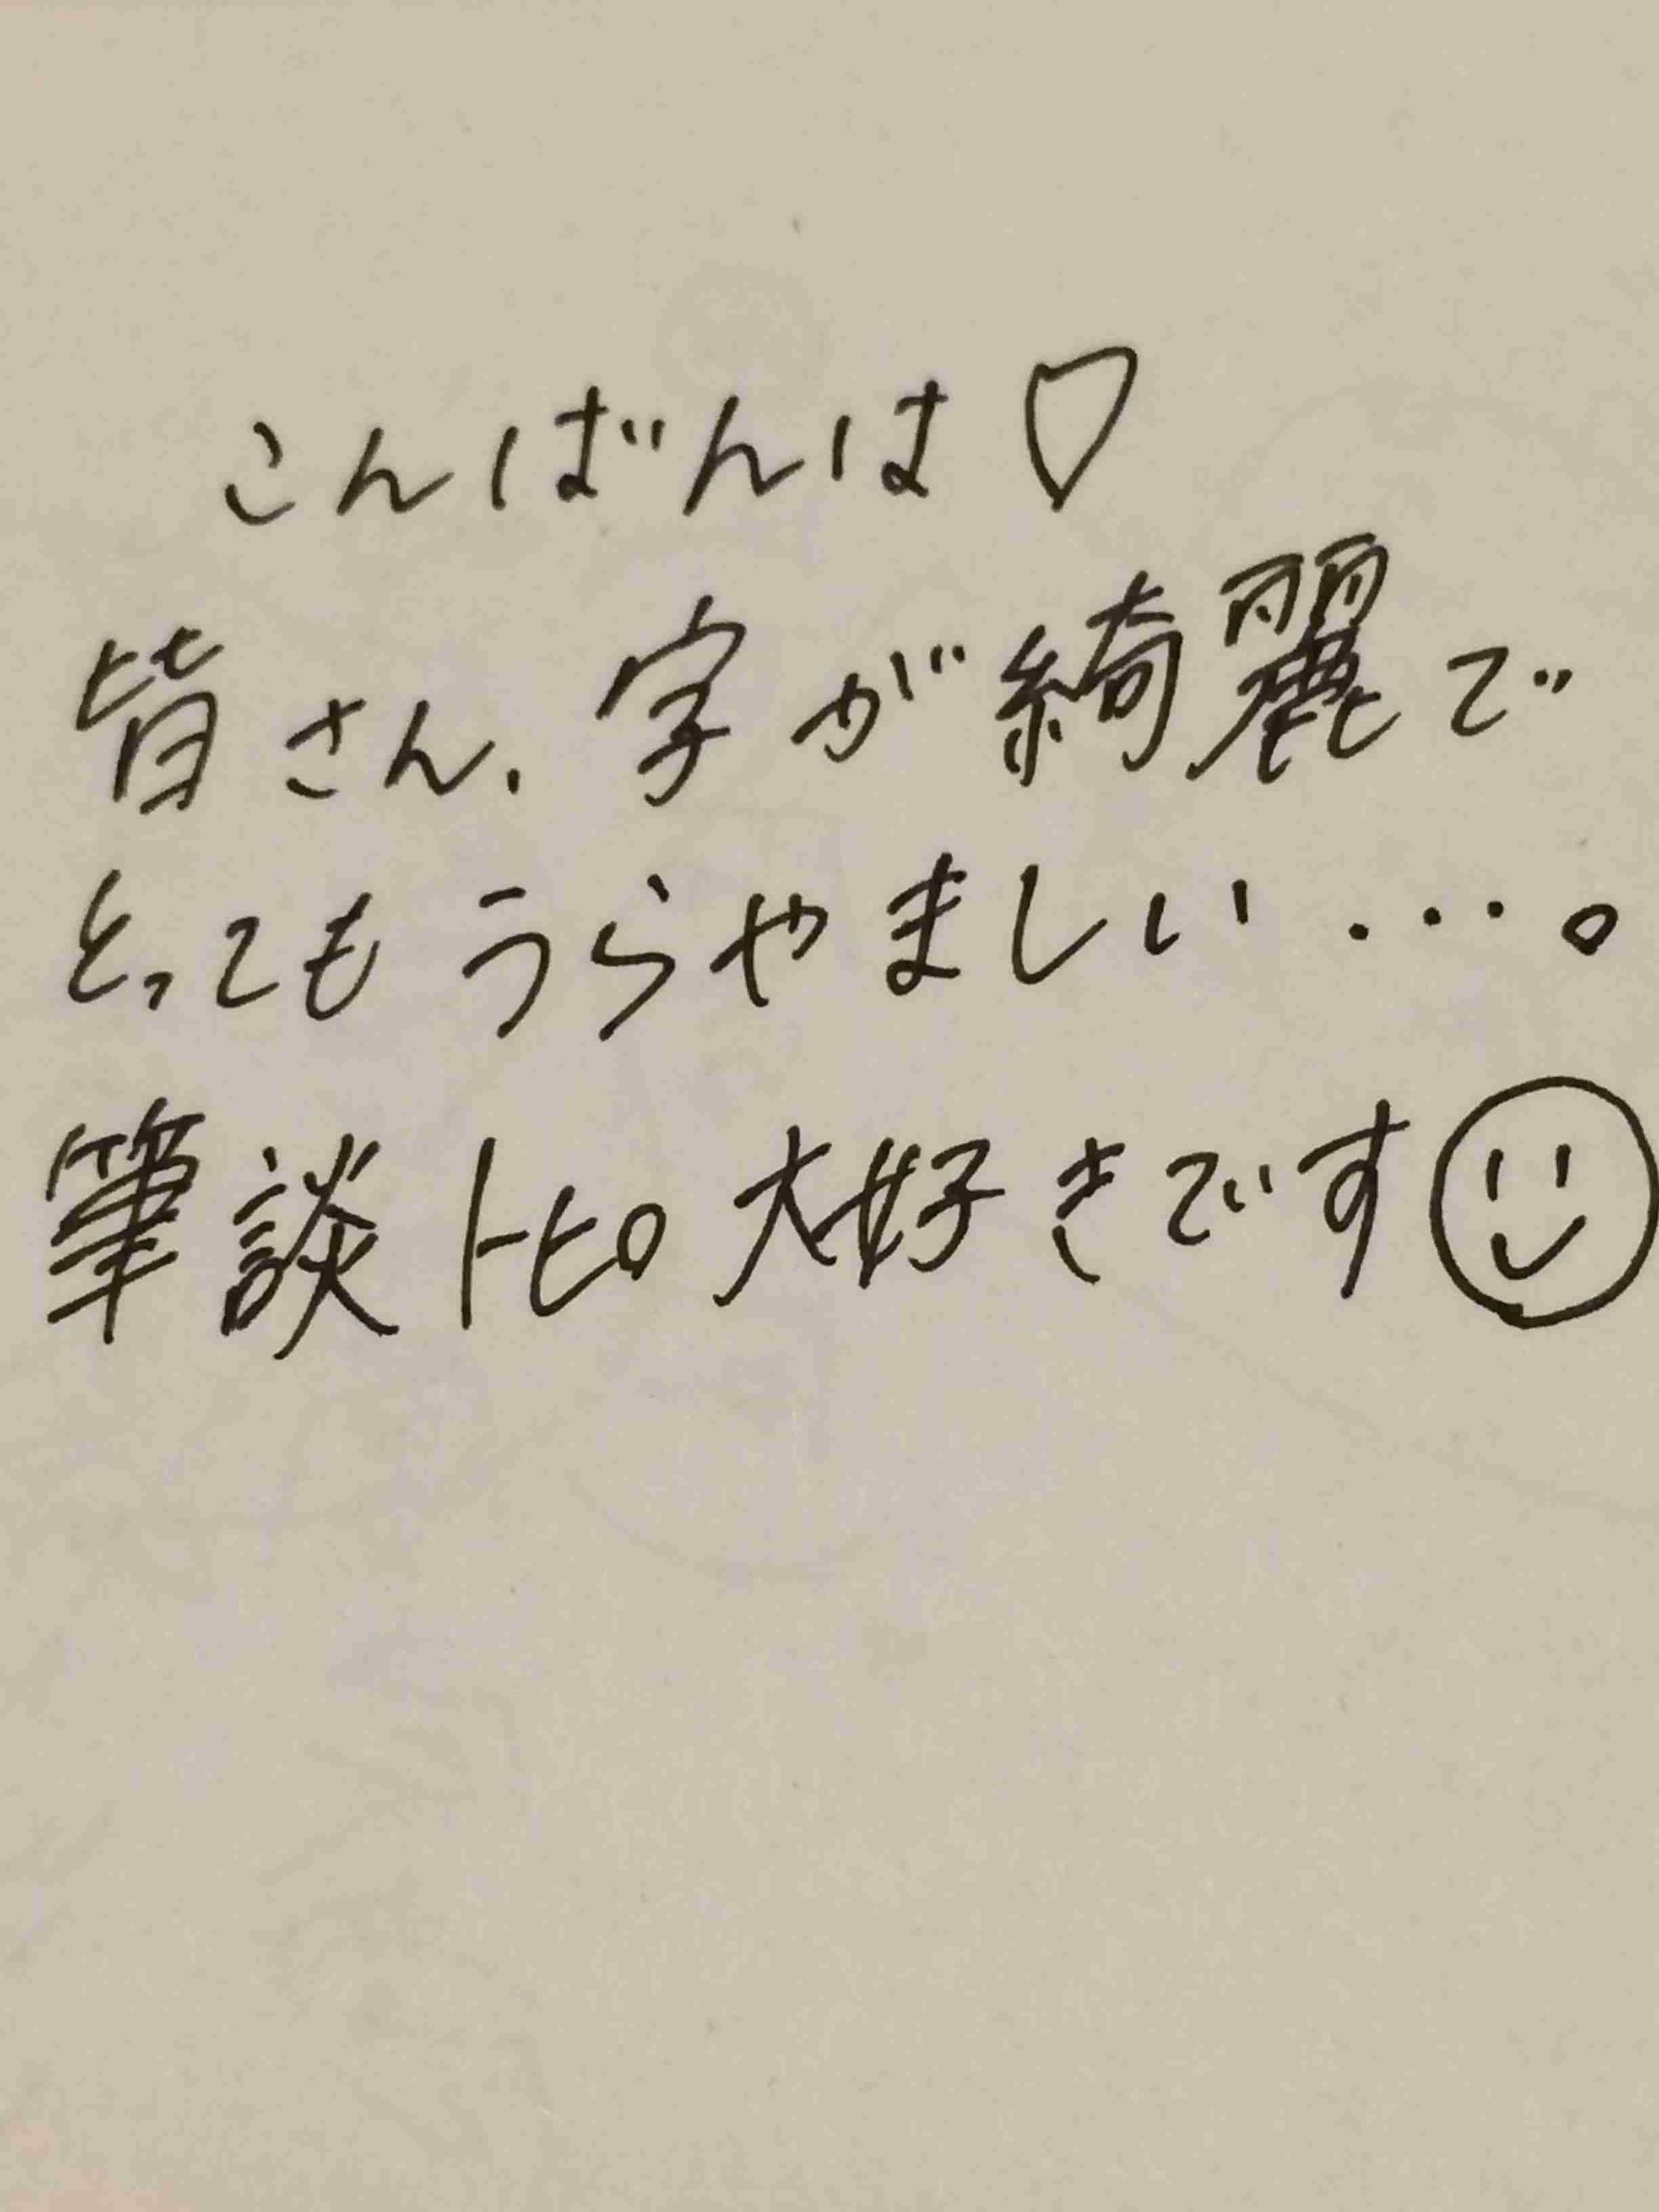 こんばんは♡
皆さん、字が綺麗で
とってもうらやましい・・・。
筆談トピ大好きです☺